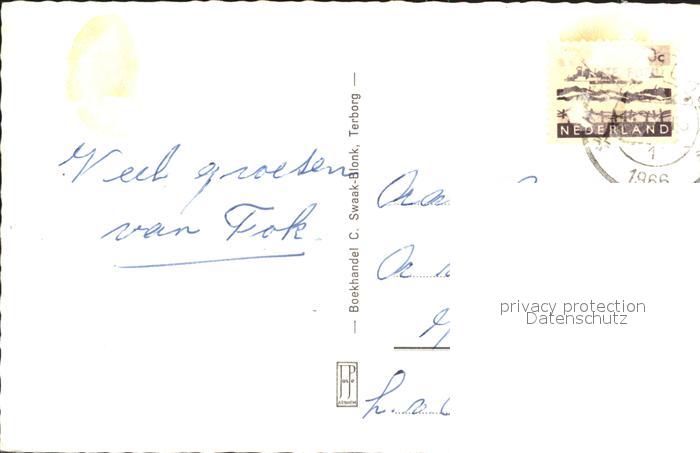 Veel groeten
van Fok.
— Boekhandel C. Swaak-Blonk, Terborg —
NEDERLAND
1966
privacy protection
Datenschutz